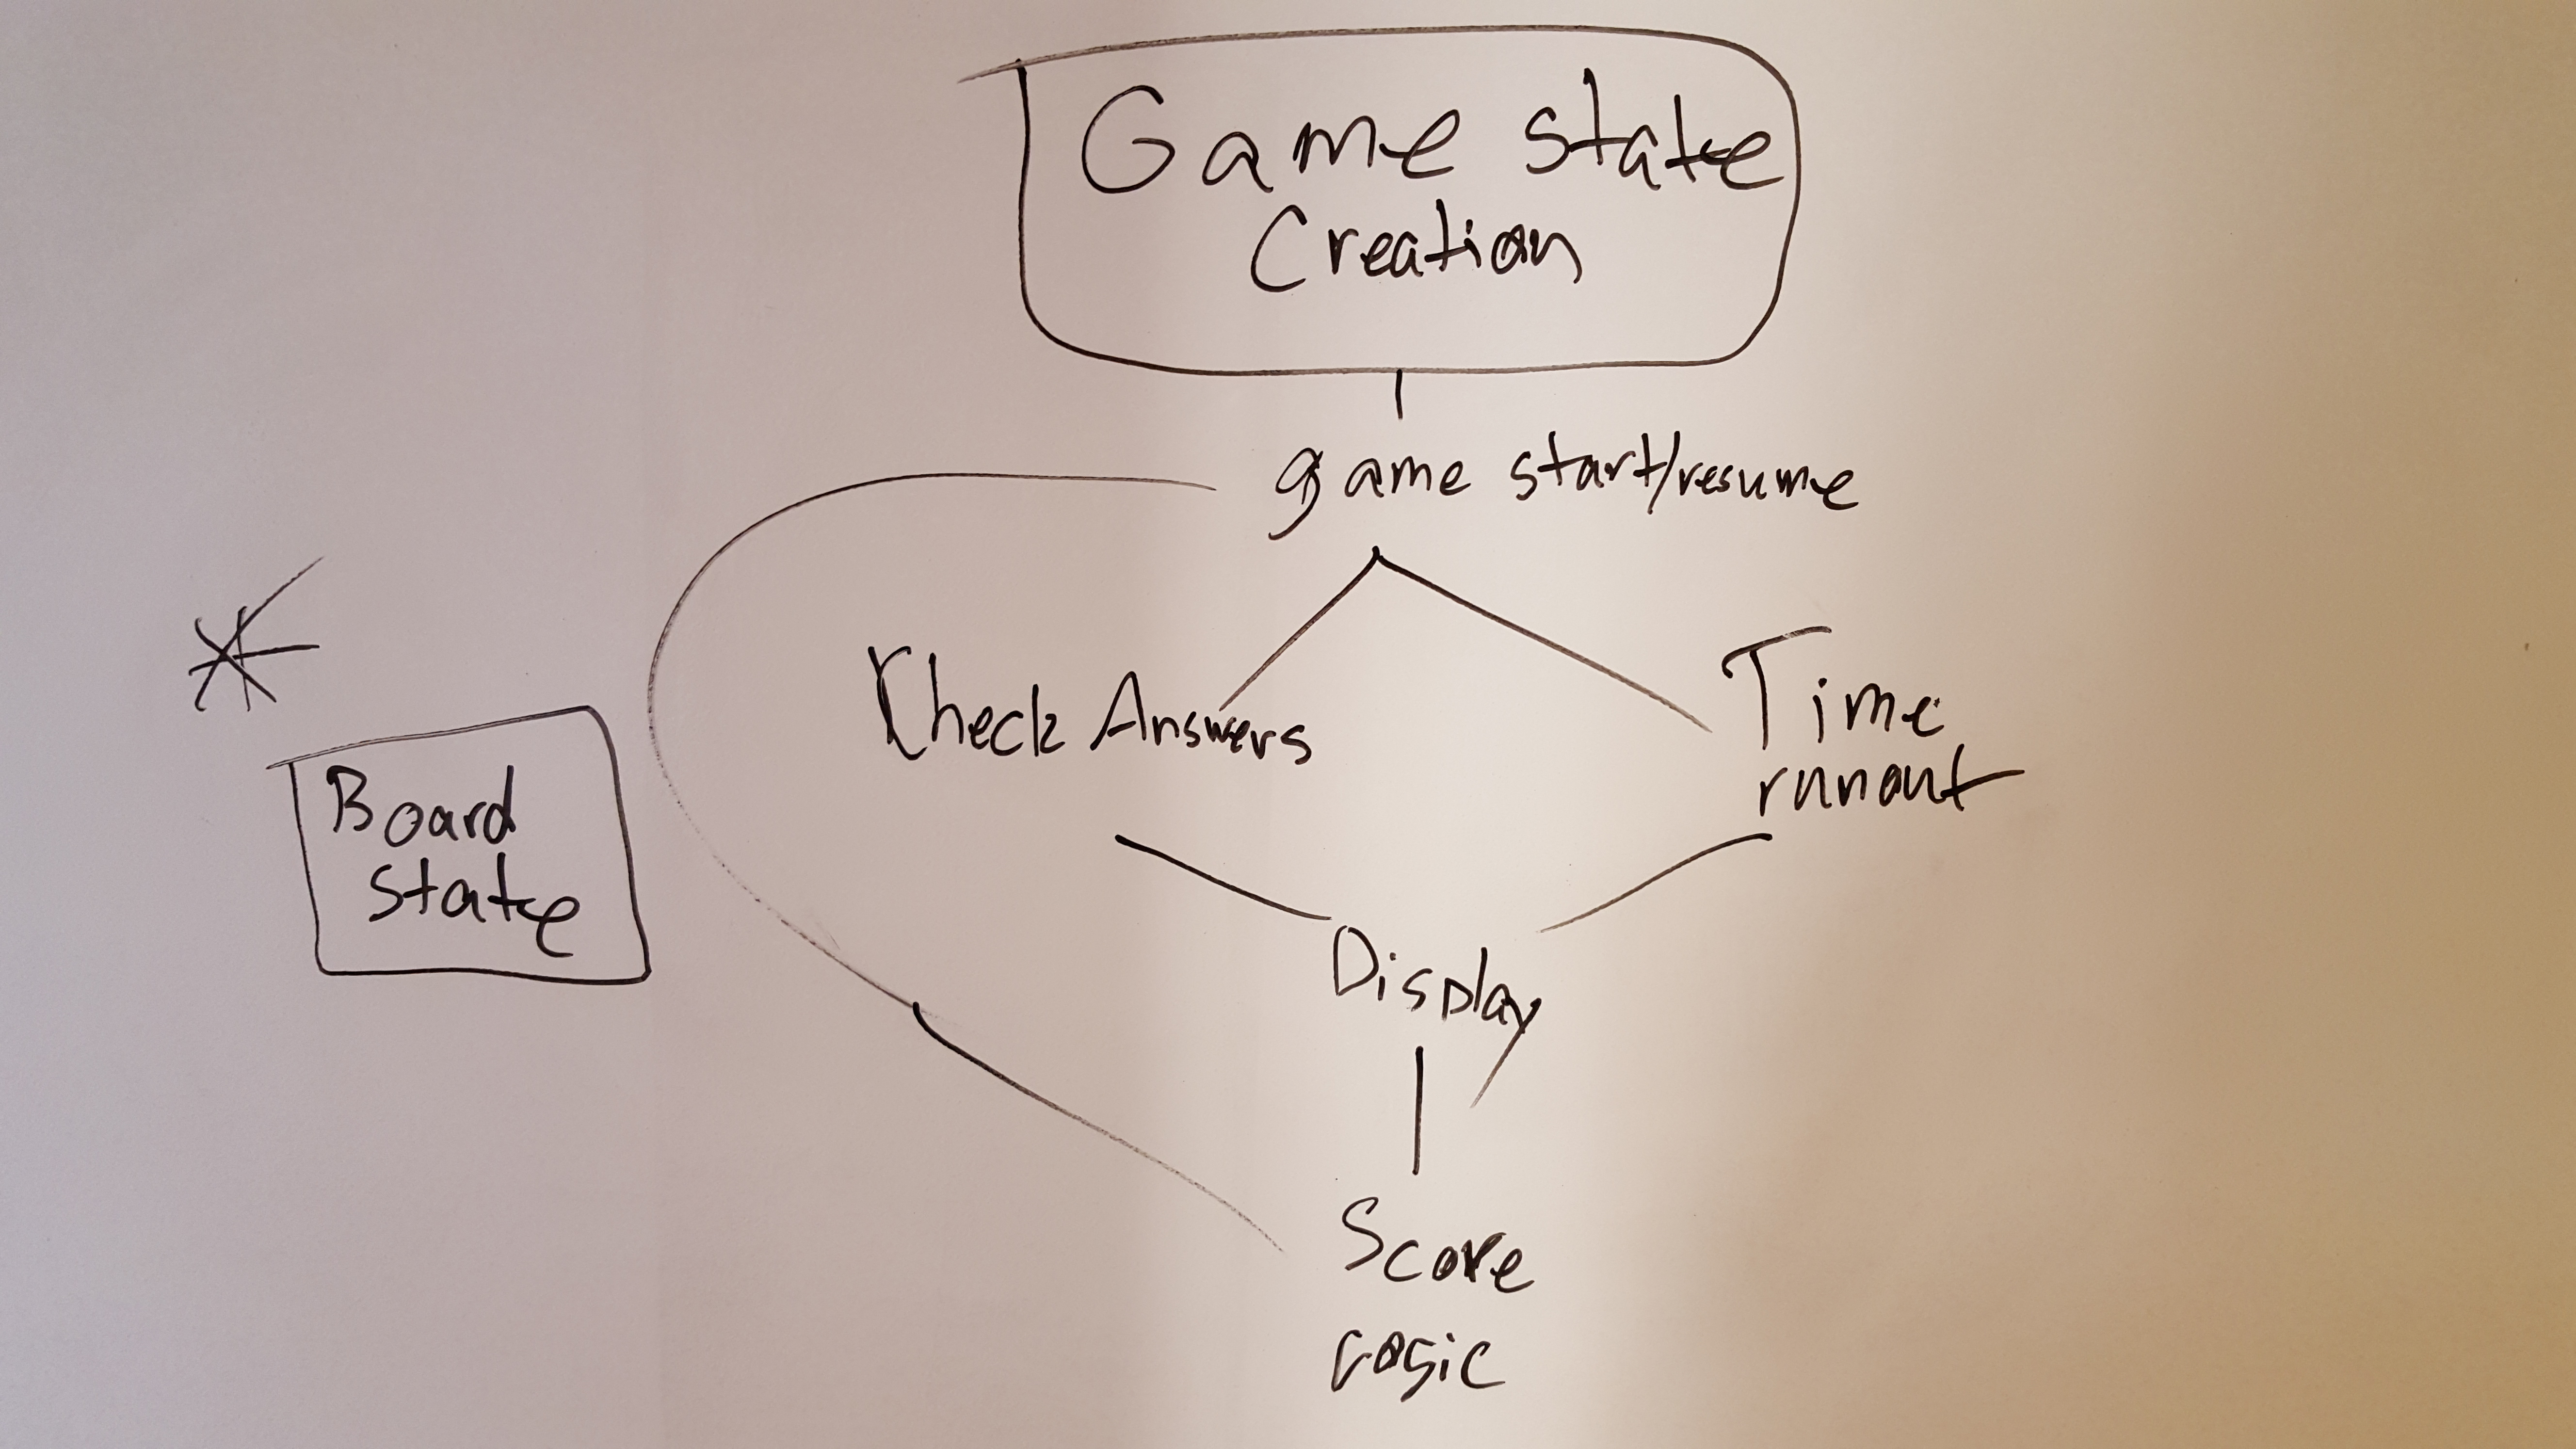 Game state
Creation
game start/resume
Check Answers
Time
runout
*
Board
state
Display
Score